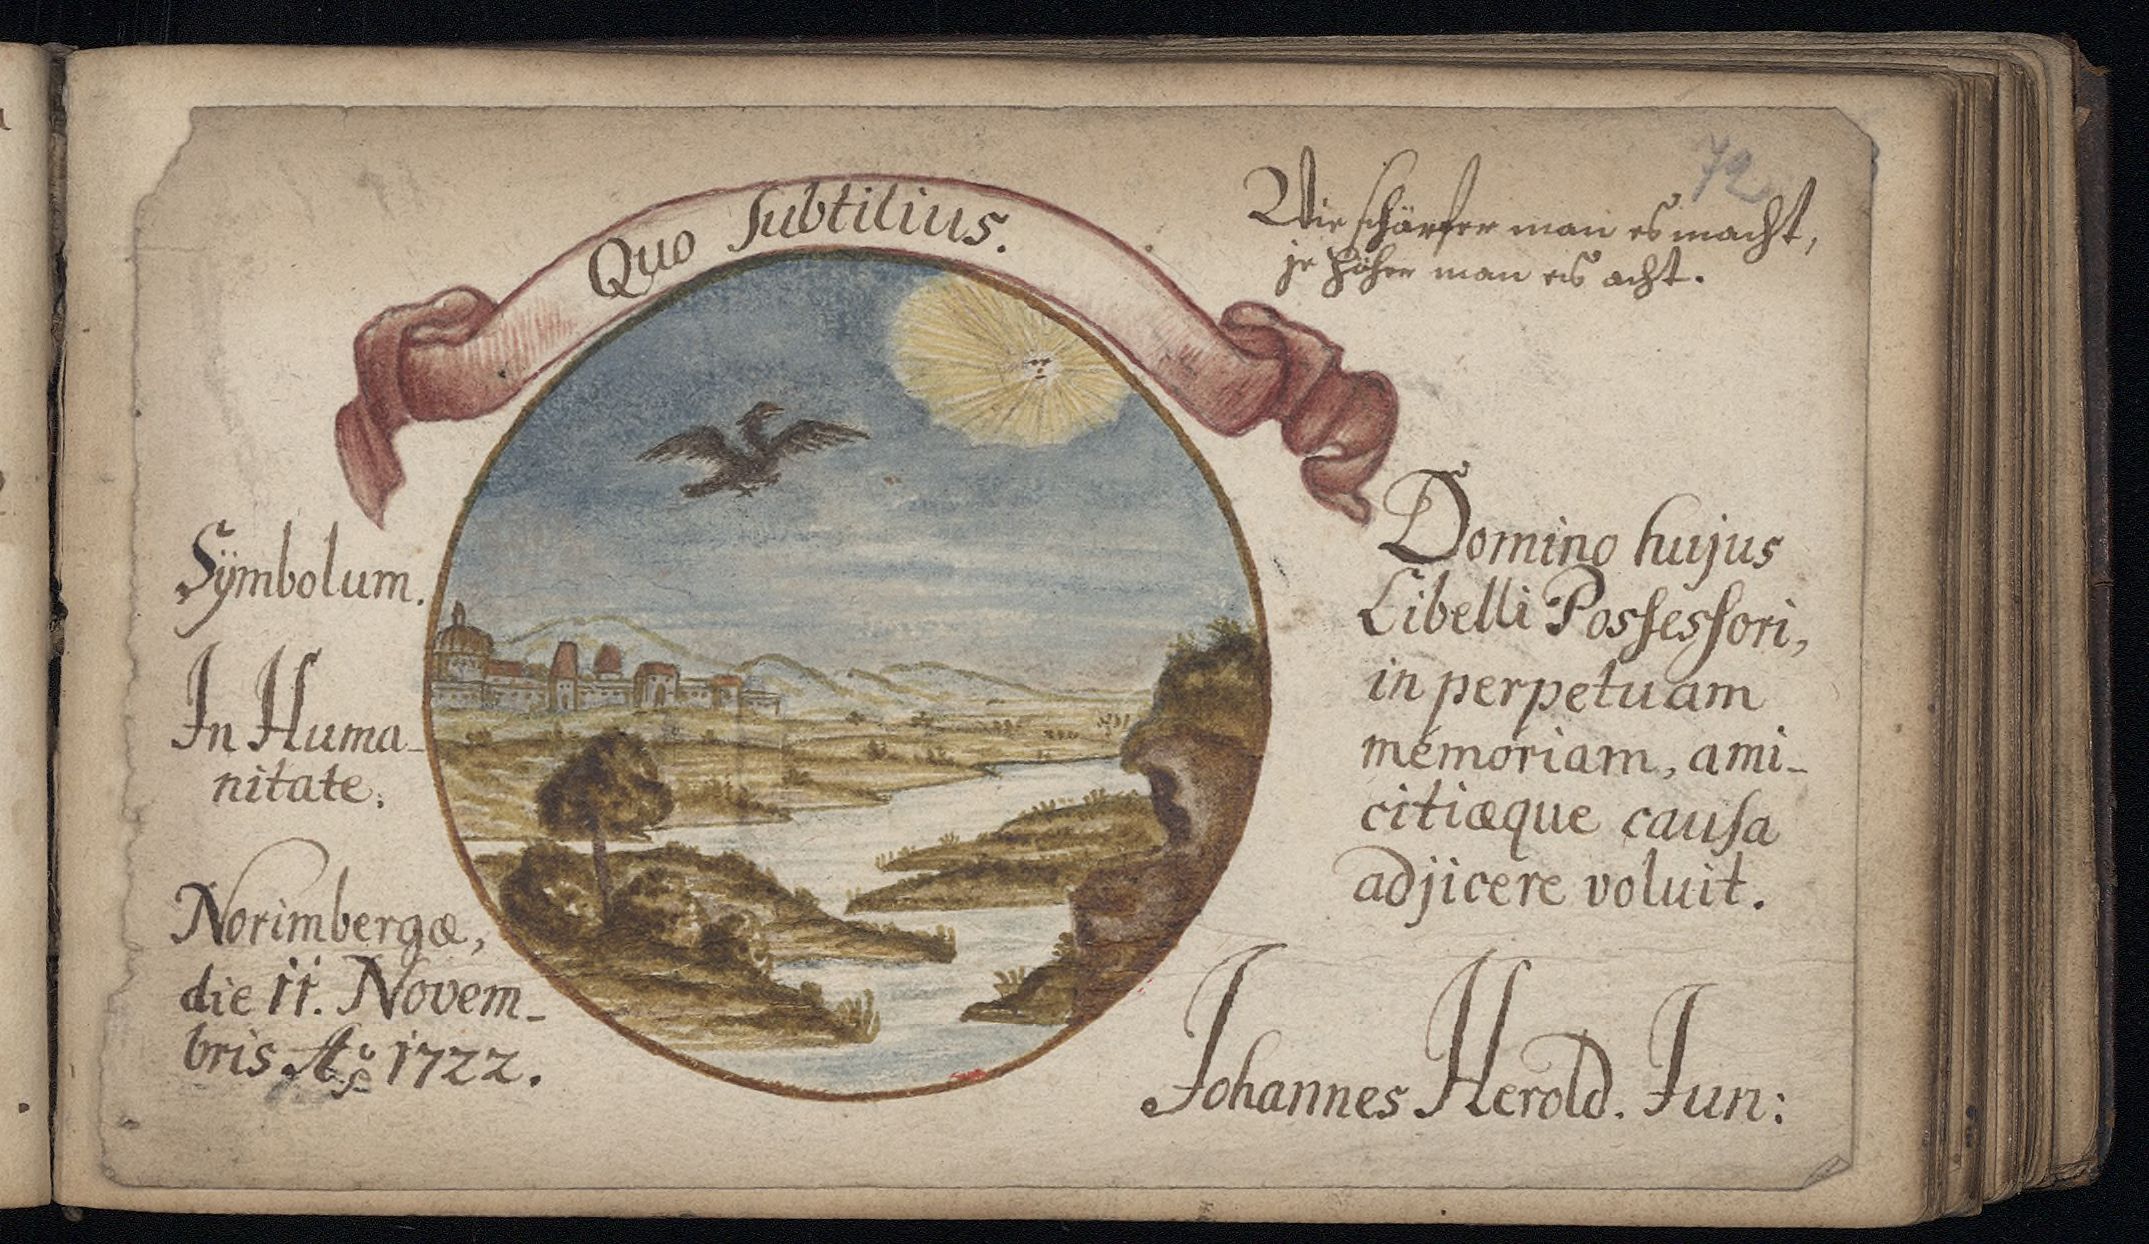 Quo Subtilius.
72
Wie schärfer man es macht,
je höher man es acht.
Sÿmbolum.
In Huma-
nitate.
Norimbergæ,
die 11. Novem-
bris Aº 1722.
Domino hujus
Libelli Possessori,
in perpetuam
memoriam, ami-
citiæque causa
adjicere voluit.
Johannes Herold. Jun: